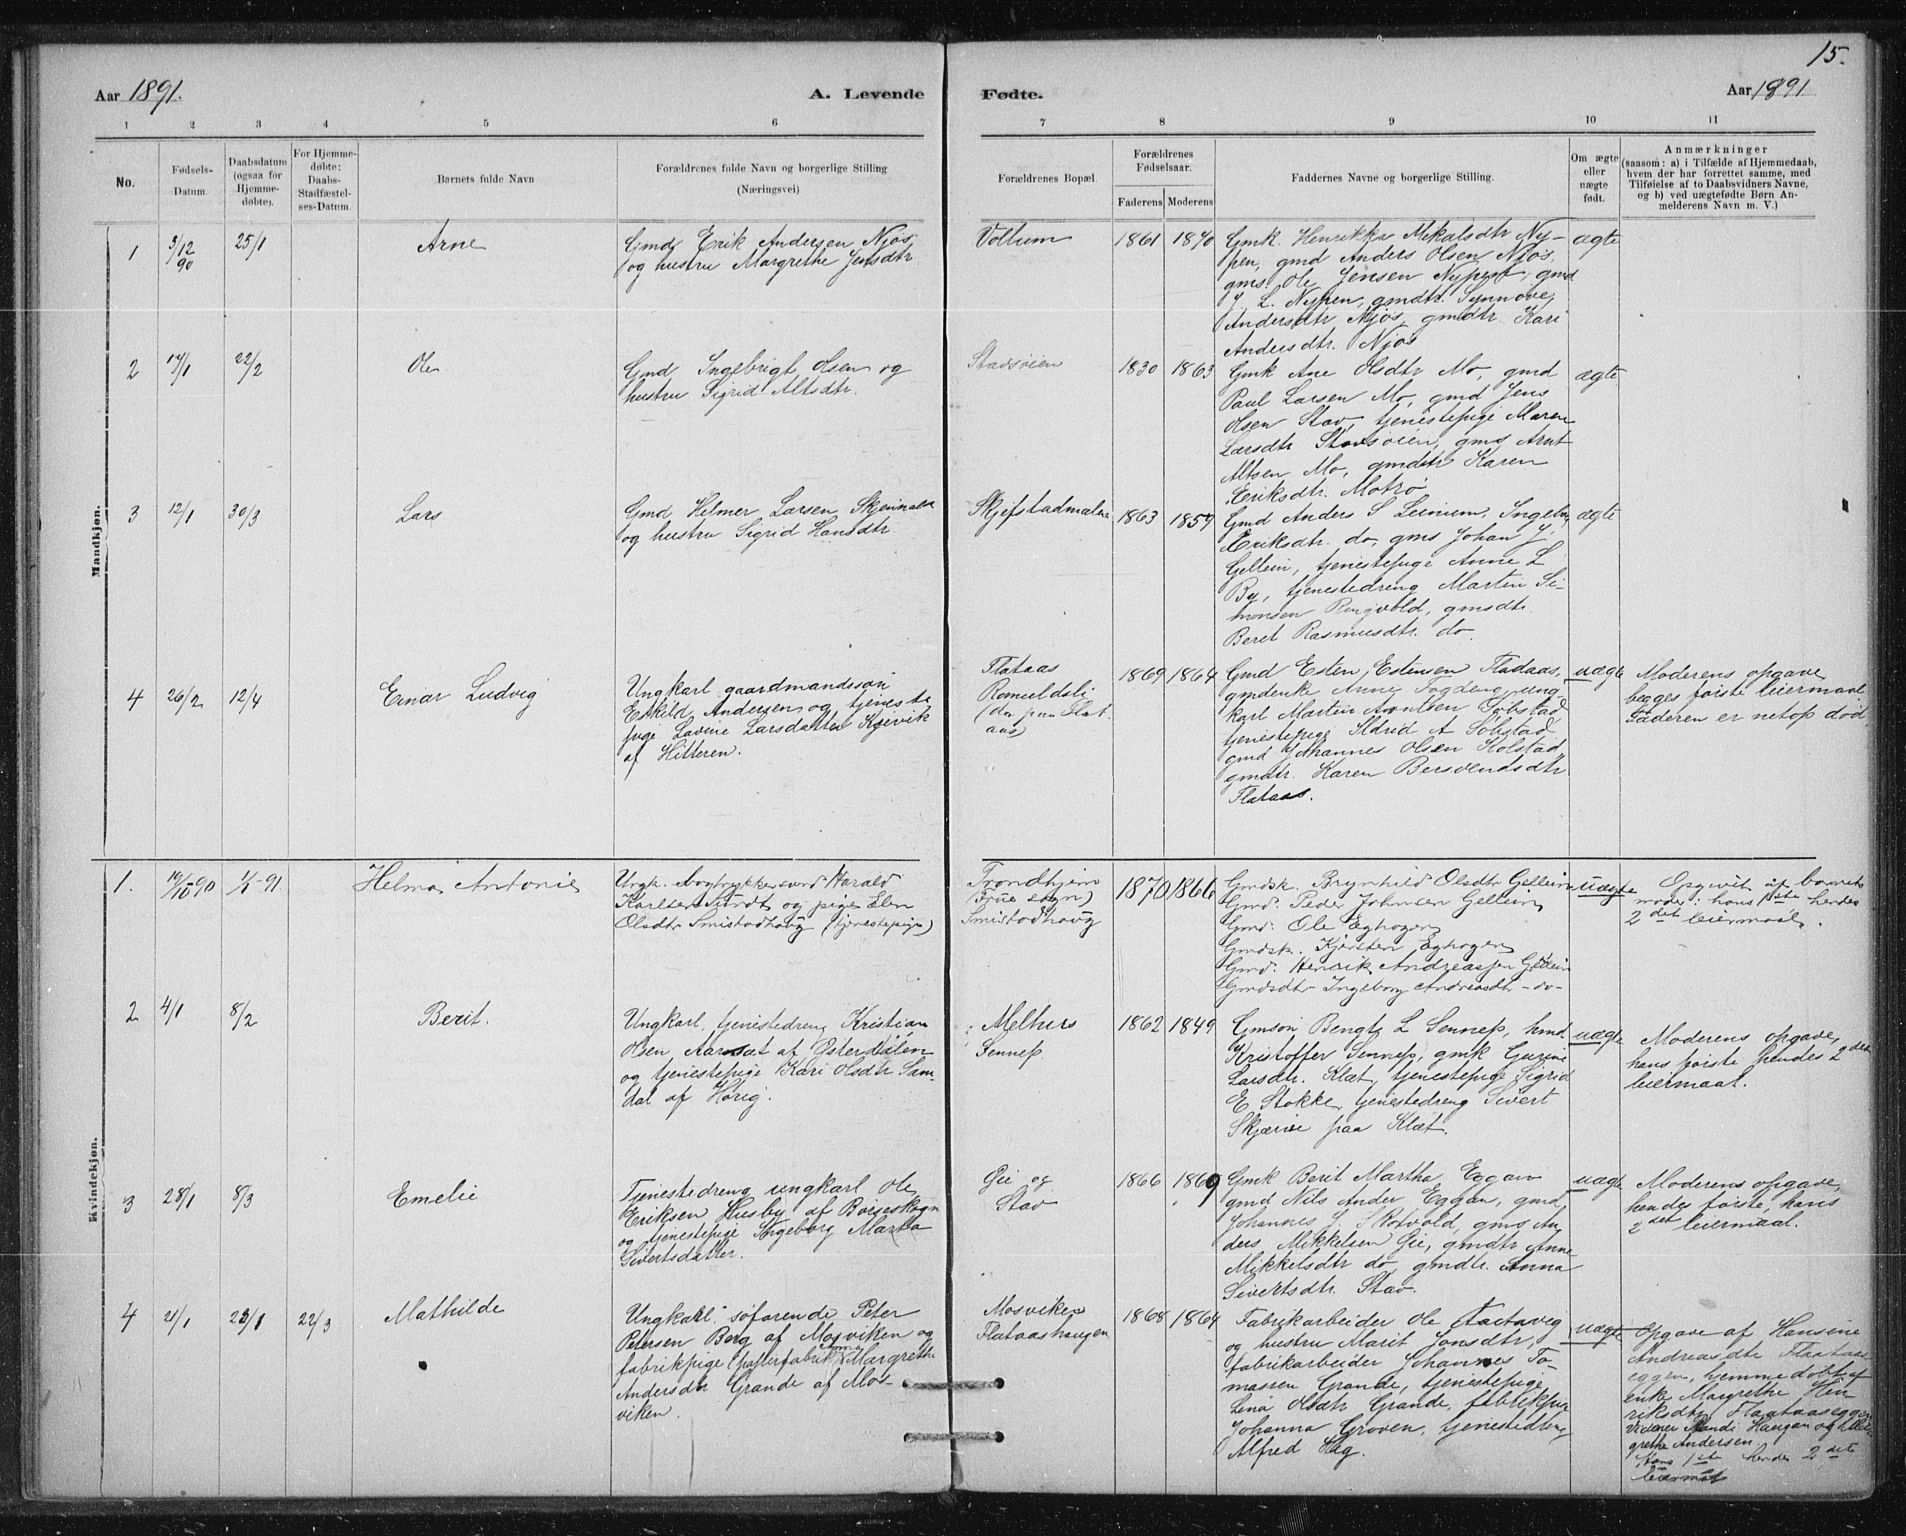 15.
Aar 1891. A. Levende Fødte. Aar 1891
1 2 3 4 5 6 7 8 9 10 11
No.
Fødsels-
Datum.
Daabsdatum
(ogsaa for
Hjemme-
døbte).
For Hjemme-
døbte:
Daabs-
Stadfæstel-
ses-Datum.
Barnets fulde Navn
Forældrenes fulde Navn og borgerlige Stilling
(Næringsvei)
Forældrenes Bopæl.
Forældrenes
Fødselsaar.
Faderens Moderens
Faddernes Navne og borgerlige Stilling.
Om ægte
eller
uægte
født.
Anmærkninger
(saasom: a) i Tilfælde af Hjemmedaab,
hvem der har forrettet samme, med
Tilføielse af to Daabsvidners Navne,
og b) ved uægtefødte Børn An-
melderens Navn m. V.)
Mandkjøn.
1
3/12
90
25/1
Arne
Gmd Erik Andersen Njøs
og hustru Margrethe Jensdtr
Voltum
1861 1870
Gmk. Henrikka Mikalsdtr Ny-
pen, gmd Anders Olsen Njøs,
gms. Ole Jensen Nypen, gmd
J. L. Nypen, gmdtr. Synnøve
Andersdtr Njøs, gmdtr Kari
Andersdtr. Njøs
ægte
2
17/1
22/2
Ole
Gmd Ingebrigt Olsen og
hustru Sigrid Altsdtr.
Stavsøien
1830 1863
Gmk Ane Olsdtr Mo, gmd
Paul Larsen Mo, gmd Jens
Olsen Stav, tjenestepige Maren
Larsdtr Stavsøien, gms Arnt
Altsen Mo, gmdtr Karen
Eriksdtr. Motrø
ægte
3
12/1
30/3
Lars
Gmd Helmer Larsen
og hustru Sigrid Hansdtr
1863 1859
Gmd Anders S Leinum, Ingeborg
Eriksdtr. do, gms Johan J.
Gellein, tjenestepige Anne L
By, tjenestedreng Martin Si-
monsen Ringvold, gmsdtr.
Beret Rasmusdtr. do
ægte
4
26/2
12/4
Einar Ludvig
Ungkarl gaardmandssøn
Eskild Andersen og tjeneste
pige Lavine Larsdatter Kjevik
af Hitteren.
Flataas
Romuldsli
(der paa Flat
aas)
1869 1864
Gmd Esten Estensen Fladaas,
gmdenke Anne ung-
karl Martin Arntsen Sobstad
tjenestepige Ildrid A Sobstad
gmd Johannes Olsen Kolstad
gmdtr. Karen Bersvendsdtr
Flataas.
uægte
Moderens opgave
begges første leiermaal
Faderen er netop død
Kvindekjøn.
1.
19/10 90
1/1-91
Helma Antonie
Ungk. Bogtrykkersvend Harald
Karlsen og pige Elen
Olsdtr Smistadhaug (tjenestepige)
Trondhjem
(Frue sogn)
Smistadhaug
1870 1866
Gmdsk. Brynhild Olsdtr Gellein
Gmd: Peder Johnsen Gellein
Gmd: Ole Eghogen
Gmdsk. Kjersten Eghogen
Gmd: Henrik Andreassen Gellein
Gmdsdtr Ingeborg Andreasdtr -do-
uægte
Opgivet af barnets
moder: hans 1ste hendes
2det leiermaal.
2
4/1
8/2
Berit.
Ungkarl, tjenestedreng Kristian
Olsen Aarsæt af Østerdalen
og tjenestepige Kari Olsdtr Sam-
dal af Horig.
Melhus
Sennep
1862 1849
Gmsøn Bengt L Sennep, hmd
Kristoffer Sennep, gmk Gurine
Larsdtr. Klæt, tjenestepige Sigrid
E Stokke, tjenestedreng Sivert
Skjærve paa Klæt.
uægte
Moderens opgave,
hans første hendes 2det
leiermaal.
3
28/1
8/3
Emelie
Tjenestedreng ungkarl Ole
Eriksen Husby af Børseskogn
og tjenestepige Ingeborg Marta
Sivertsdatter.
Øie og
Stav
1866 1869
Gmk Berit Martha Eggan
gmd Nils Ander Eggan, gmd
Johannes J. Skotvold, gms An-
ders Mikkelsen Øie, gmdtr Anne
Mikkelsdtr do, gmdtr. Anna
Sivertsdtr. Stav.
uægte
Moderens opgave,
hendes første, hans
2det leiermaal.
4
21/1
23/1
22/3
Mathilde
Ungkarl søfarende Peter
Petersen Berg af Mosviken og
fabrikpige (papirfabrik) Anne Margrethe
Andersdtr Grande af Mos-
viken.
Mosviken
Flataashaugen
1868 1864
Fabrikarbeider Ole
og hustru Marit Jonsdtr,
fabrikarbeider Johannes To-
massen Grande, tjenestepige
Lina Olsdtr Grande, fabrikpige
Johanna Groven, tjenestedreng
Alfred Hag.
uægte
Opgave af Hansine
Andreasdtr Flataas
eggen, hjemmedøbt af
enke Margrethe Hen
riksdtr Flataaseggen
vidner Randi Haugen og Mar
grethe Andersen
Hans 1ste hendes 2det
leiermaal